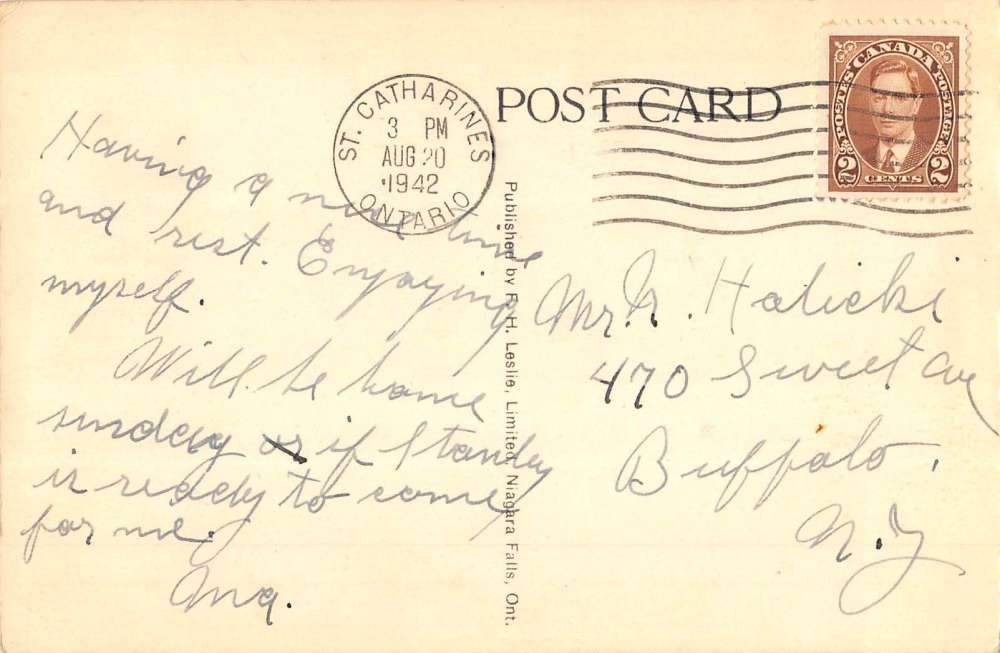 POST CARD
ST. CATHARINES
3 PM
AUG 20
1942
ONTARIO
POSTES CANADA POSTAGE
2 CENTS 2
Having a nice time
and rest. Enjoying
myself.
Will be home
sunday or if Stanley
is ready to come
for me.
Published by F. H. Leslie, Limited, Niagara Falls, Ont.
Mr. N. Halicki
470 Sweet Ave
Buffalo,
N.Y